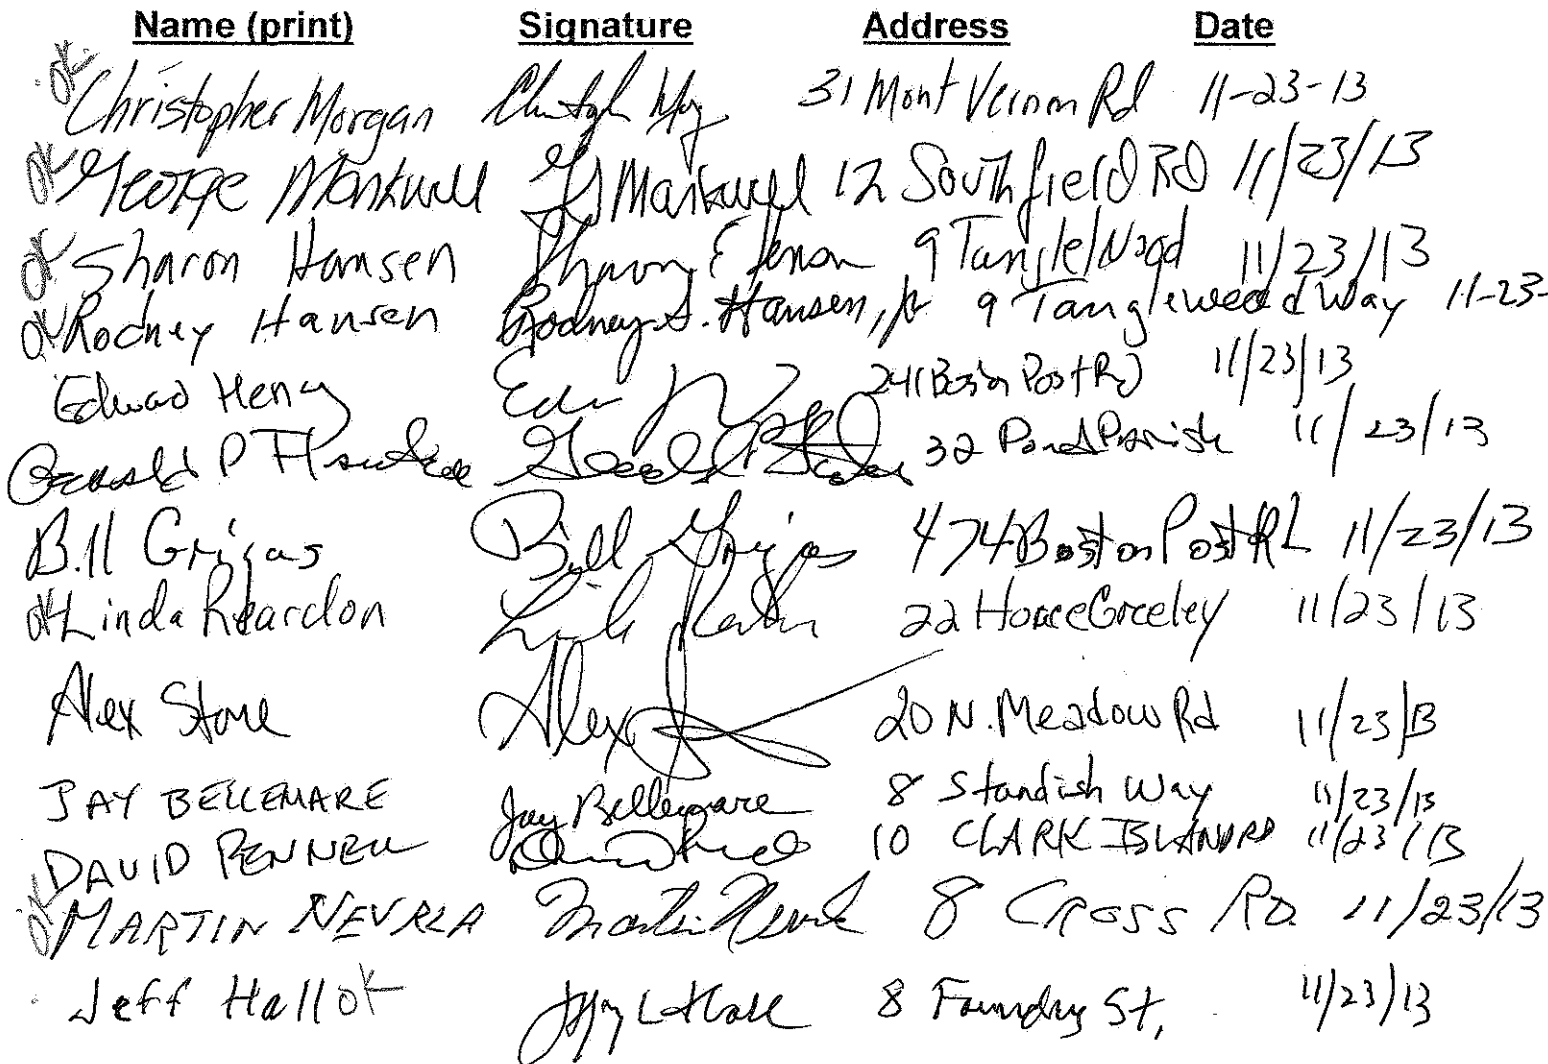 Name (print) Signature Address Date
ok Christopher Morgan 31 Mont Vernon Rd 11-23-13
ok George Markwell Markwell 12 Southfield Rd 11/23/13
ok Sharon Hansen Sharon E 9 Tanglewood 11/23/13
ok Rodney Hansen Rodney S. Hansen, Jr 9 Tanglewood Way 11-23-
Edward Henry 241 Boston Post Rd 11/23/13
P 32 Pond Parish 11/23/13
Bill Grigas Bill Grigas 474 Boston Post Rd 11/23/13
ok Linda Reardon 22 Horace Greeley 11/23/13
Alex Stone Alex 20 N. Meadow Rd 11/23/13
JAY BELLEMARE Jay Bellemare 8 Standish Way 11/23/13
DAVID PENNELL 10 CLARK ISLAND RD 11/23/13
ok MARTIN NEVRLA Martin 8 CROSS RD. 11/23/13
Jeff Hall ok 8 Foundry St, 11/23/13